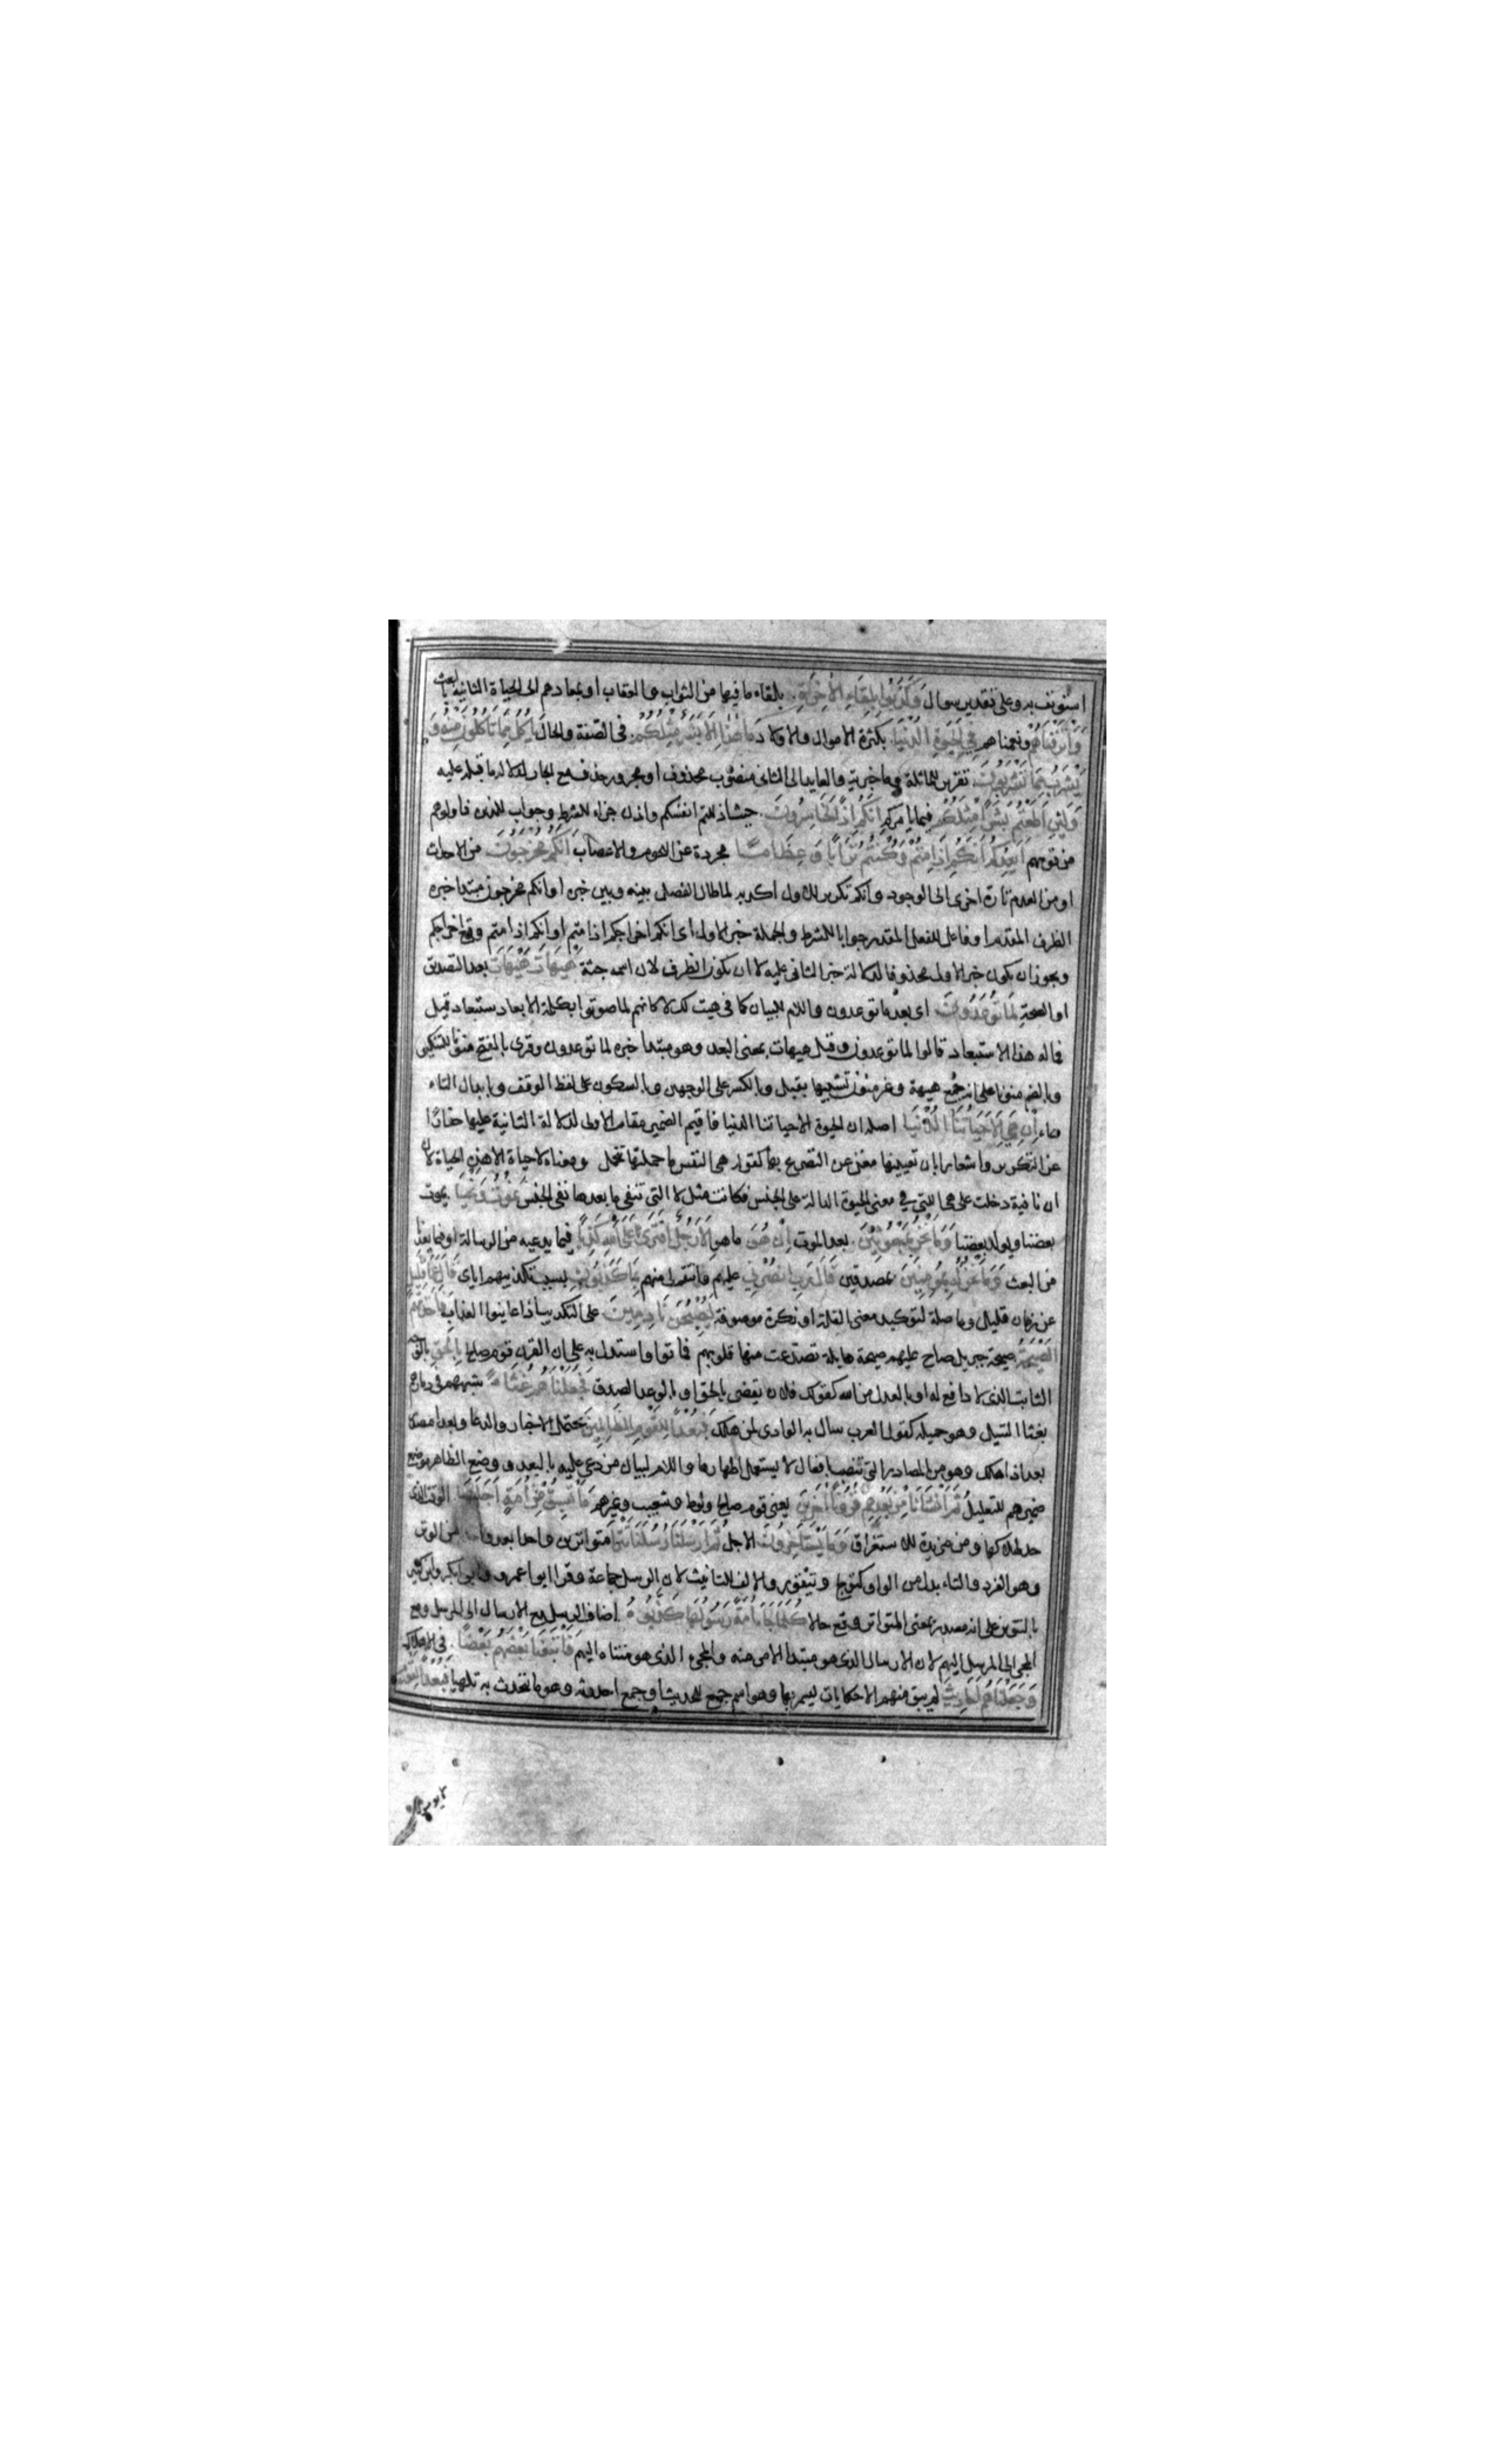 استونف به وعلى تقدير سوال وَكَذَّبُوا بِلِقَاءِ الْاٰخِرَةِ بلقاء ما فيها من الثواب والعقاب او بمعادهم الى الحياة الثانية بالبعث
وَأَتْرَفْنَاهُمْ ونعمناهم فِي الْحَيٰوةِ الدُّنْيَا بكثرة الاموال والاولاد مَا هٰذَا اِلَّا بَشَرٌ مِثْلُكُمْ في الصفة والحال يَأْكُلُ مِمَّا تَأْكُلُونَ مِنْهُ وَ
يَشْرَبُ مِمَّا تَشْرَبُونَ تقرير للماثلة وما خبرية والعايد الى الثاني منصوب محذوف او مجرور حذف مع الجار لدلالة ما قبله عليه
وَلَئِنْ اَطَعْتُمْ بَشَرًا مِثْلَكُمْ فيما يامركم اِنَّكُمْ اِذًا لَخَاسِرُونَ حيث اذللتم انفسكم واذن جزاء للشرط وجواب للذين قاولوهم
من قومهم اَيَعِدُكُمْ اَنَّكُمْ اِذَا مِتُّمْ وَكُنْتُمْ تُرَابًا وَعِظَامًا مجردة عن اللحوم والاعصاب اَنَّكُمْ مُخْرَجُونَ من الاحداث
او من العدم تارة اخرى الى الوجود وانكم تكرير للاول اكد به لما طال الفصل بينه وبين خبره او انكم مخرجون مبتدا خبره
الظرف المقدم او فاعل للفعل المقدر جوابا للشرط والجملة خبر الاول اى انكم اخراجكم اذا متم او انكم اذا متم وقع اخراجكم
ويجوز ان يكون خبر الاول محذوفا لدلالة خبر الثاني عليه لا ان يكون الظرف لان اسمه جثة هَيْهَاتَ هَيْهَاتَ بعد التصديق
او الصحة لِمَا تُوعَدُونَ اى بعد ما توعدون واللام للبيان كما في هيت لك لا كانهم لما صوتوا بكلمة الابعاد ستبعاد قيل
فما له هذا الاستبعاد قالوا لما توعدون وقيل هيهات بمعنى البعد وهو مبتدا خبره لما توعدون وقرى بالفتح منونا للتنكير
وبالضم منونا على انه جمع هيهة وغير منون تشبيها بقبل وبالكسر على الوجهين وبالسكون على لفظ الوقف وبابدال التاء
هاء اِنْ هِيَ اِلَّا حَيَاتُنَا الدُّنْيَا اصله ان الحيوة الا حياتنا الدنيا فاقيم الضمير مقام الاولى لدلالة الثانية عليها حذارا
عن التكرير واشعارا بان تعيينها مغن عن التصريح بها كقوله هي النفس ما حملتها تحمل ومعناه لا حياة الا هذه الحياة لان
ان نافية دخلت على هى التي في معنى الحيوة الدالة على الجنس فكانت مثل لا التي تنفى ما بعدها نفى الجنس نَمُوتُ وَنَحْيَا يموت
بعضنا ويولد بعضنا وَمَا نَحْنُ بِمَبْعُوثِينَ بعد الموت اِنْ هُوَ ما هو اِلَّا رَجُلٌ اِفْتَرٰى عَلَى اللّٰهِ كَذِبًا فيما يدعيه من الرسالة او فيما يعدنا
من البعث وَمَا نَحْنُ لَهُ بِمُؤْمِنِينَ بمصدقين قَالَ رَبِّ انْصُرْنِي عليهم وانتقم لى منهم بِمَا كَذَّبُونِ بسبب تكذيبهم اياى قَالَ عَمَّا قَلِيلٍ
عن زمان قليل وما صلة لتوكيد معنى القلة او نكرة موصوفة لَيُصْبِحُنَّ نَادِمِينَ على التكذيب اذا عاينوا العذاب فَاَخَذَتْهُمُ
الصَّيْحَةُ صيحة جبريل صاح عليهم صيحة هايلة تصدعت منها قلوبهم فماتوا واستدل به على ان القرن قوم صالح بِالْحَقِّ بالوجه
الثابت الذى لا دافع له او بالعدل من الله كقولك فلان يقضى بالحق او بالوعد الصدق فَجَعَلْنَاهُمْ غُثَاءً شبههم في دمارهم
بغثا السيل وهو حميله كقول العرب سال به الوادى لمن هلك فَبُعْدًا لِلْقَوْمِ الظَّالِمِينَ يحتمل الاخبار والدعا وبعدا مصدر
بعد اذا هلك وهو من المصادر التي تنصب بافعال لا يستعمل اظهارها واللام لبيان من دعى عليه بالبعد ووضع الظاهر موضع
ضميرهم للتعليل ثُمَّ اَنْشَأْنَا مِنْ بَعْدِهِمْ قُرُونًا اٰخَرِينَ يعنى قوم صالح ولوط وشعيب وغيرهم مَا تَسْبِقُ مِنْ اُمَّةٍ اَجَلَهَا الوقت الذى
حد لهلاكها ومن مزيدة للاستغراق وَمَا يَسْتَأْخِرُونَ الاجل ثُمَّ اَرْسَلْنَا رُسُلَنَا تَتْرَا متواترين واحدا بعد واحد من الوتر
وهو الفرد والتاء بدل من الواو كتولج وتيقور والالف للتانيث لان الرسل جماعة وقرا ابو عمرو وابو بكر وابن كثير
بالتنوين على انه مصدر بمعنى المتواتر وقع حالا كُلَّمَا جَاءَ اُمَّةً رَسُولُهَا كَذَّبُوهُ اضاف الرسل مع الارسال الى المرسل ومع
المجى الى المرسل اليهم لان الارسال الذى هو مبتدا الامر منه والمجى الذى هو منتهاه اليهم فَاَتْبَعْنَا بَعْضَهُمْ بَعْضًا في الاهلاك
وَجَعَلْنَاهُمْ اَحَادِيثَ لم يبق منهم الا حكايات يسمر بها وهو اسم جمع للحديث او جمع احدوثة وهو ما يتحدث به تلهيا فَبُعْدًا لِقَوْمٍ